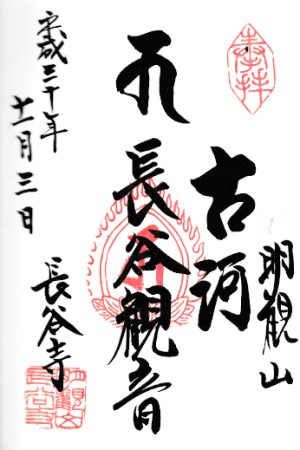 奉拝
明観山
古河
長谷観音
長谷寺
平成三十年
十一月三日